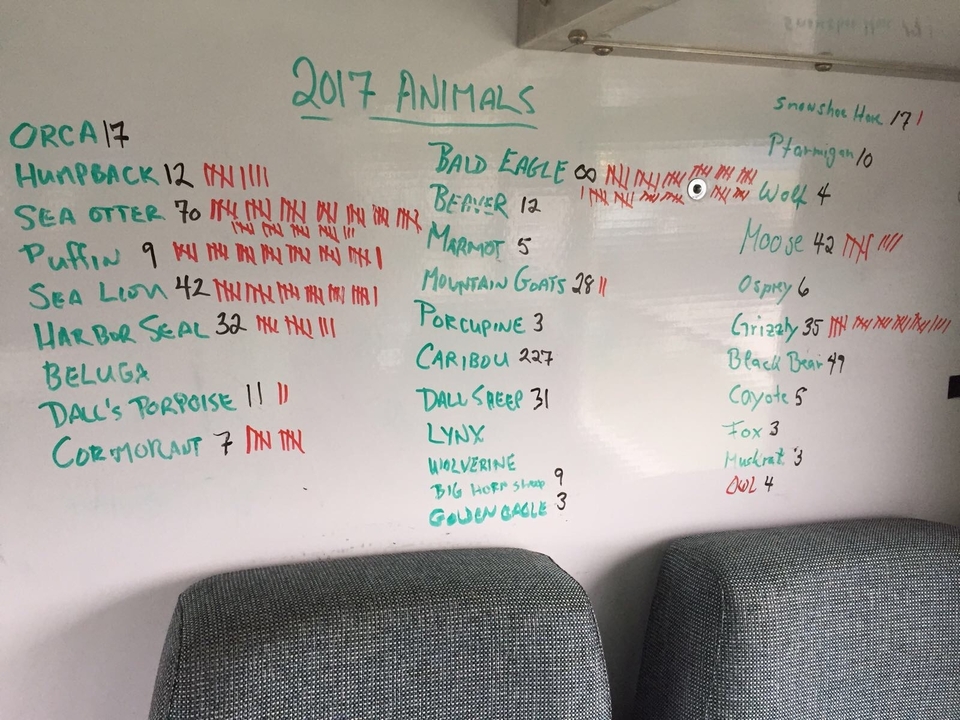 2017 ANIMALS
ORCA 17
HUMPBACK 12
SEA OTTER 70
Puffin 9
SEA LION 42
HARBOR SEAL 32
BELUGA
DALL'S PORPOISE 11
CORMORANT 7
BALD EAGLE ∞
BEAVER 12
MARMOT 5
MOUNTAIN GOATS 28
PORCUPINE 3
CARIBOU 227
DALL SHEEP 31
LYNX
WOLVERINE
BIG HORN SHEEP 9
GOLDEN EAGLE 3
Snowshoe Hare 17
Ptarmigan 10
Wolf 4
Moose 42
Osprey 6
Grizzly 35
Black Bear 49
Coyote 5
Fox 3
Muskrat 3
OWL 4